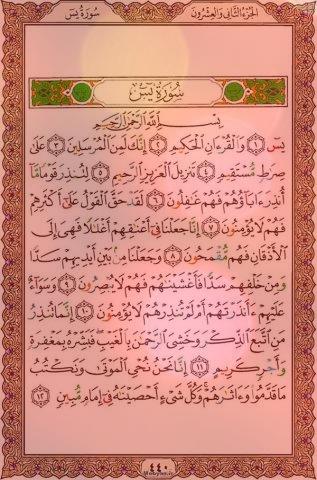 الجزء الثاني والعشرون
سورة يس
سورة يس
بسم الله الرحمن الرحيم
يسٓ ١ وَٱلْقُرْءَانِ ٱلْحَكِيمِ ٢ إِنَّكَ لَمِنَ ٱلْمُرْسَلِينَ ٣ عَلَىٰ
صِرَٰطٍ مُّسْتَقِيمٍ ٤ تَنزِيلَ ٱلْعَزِيزِ ٱلرَّحِيمِ ٥ لِتُنذِرَ قَوْمًا مَّآ
أُنذِرَ ءَابَآؤُهُمْ فَهُمْ غَٰفِلُونَ ٦ لَقَدْ حَقَّ ٱلْقَوْلُ عَلَىٰٓ أَكْثَرِهِمْ
فَهُمْ لَا يُؤْمِنُونَ ٧ إِنَّا جَعَلْنَا فِىٓ أَعْنَٰقِهِمْ أَغْلَٰلًا فَهِىَ إِلَى
ٱلْأَذْقَانِ فَهُم مُّقْمَحُونَ ٨ وَجَعَلْنَا مِنۢ بَيْنِ أَيْدِيهِمْ سَدًّا
وَمِنْ خَلْفِهِمْ سَدًّا فَأَغْشَيْنَٰهُمْ فَهُمْ لَا يُبْصِرُونَ ٩ وَسَوَآءٌ
عَلَيْهِمْ ءَأَنذَرْتَهُمْ أَمْ لَمْ تُنذِرْهُمْ لَا يُؤْمِنُونَ ١٠ إِنَّمَا تُنذِرُ
مَنِ ٱتَّبَعَ ٱلذِّكْرَ وَخَشِىَ ٱلرَّحْمَٰنَ بِٱلْغَيْبِ فَبَشِّرْهُ بِمَغْفِرَةٍ
وَأَجْرٍ كَرِيمٍ ١١ إِنَّا نَحْنُ نُحْىِ ٱلْمَوْتَىٰ وَنَكْتُبُ
مَا قَدَّمُوا۟ وَءَاثَٰرَهُمْ وَكُلَّ شَىْءٍ أَحْصَيْنَٰهُ فِىٓ إِمَامٍ مُّبِينٍ ١٢
٤٤٠